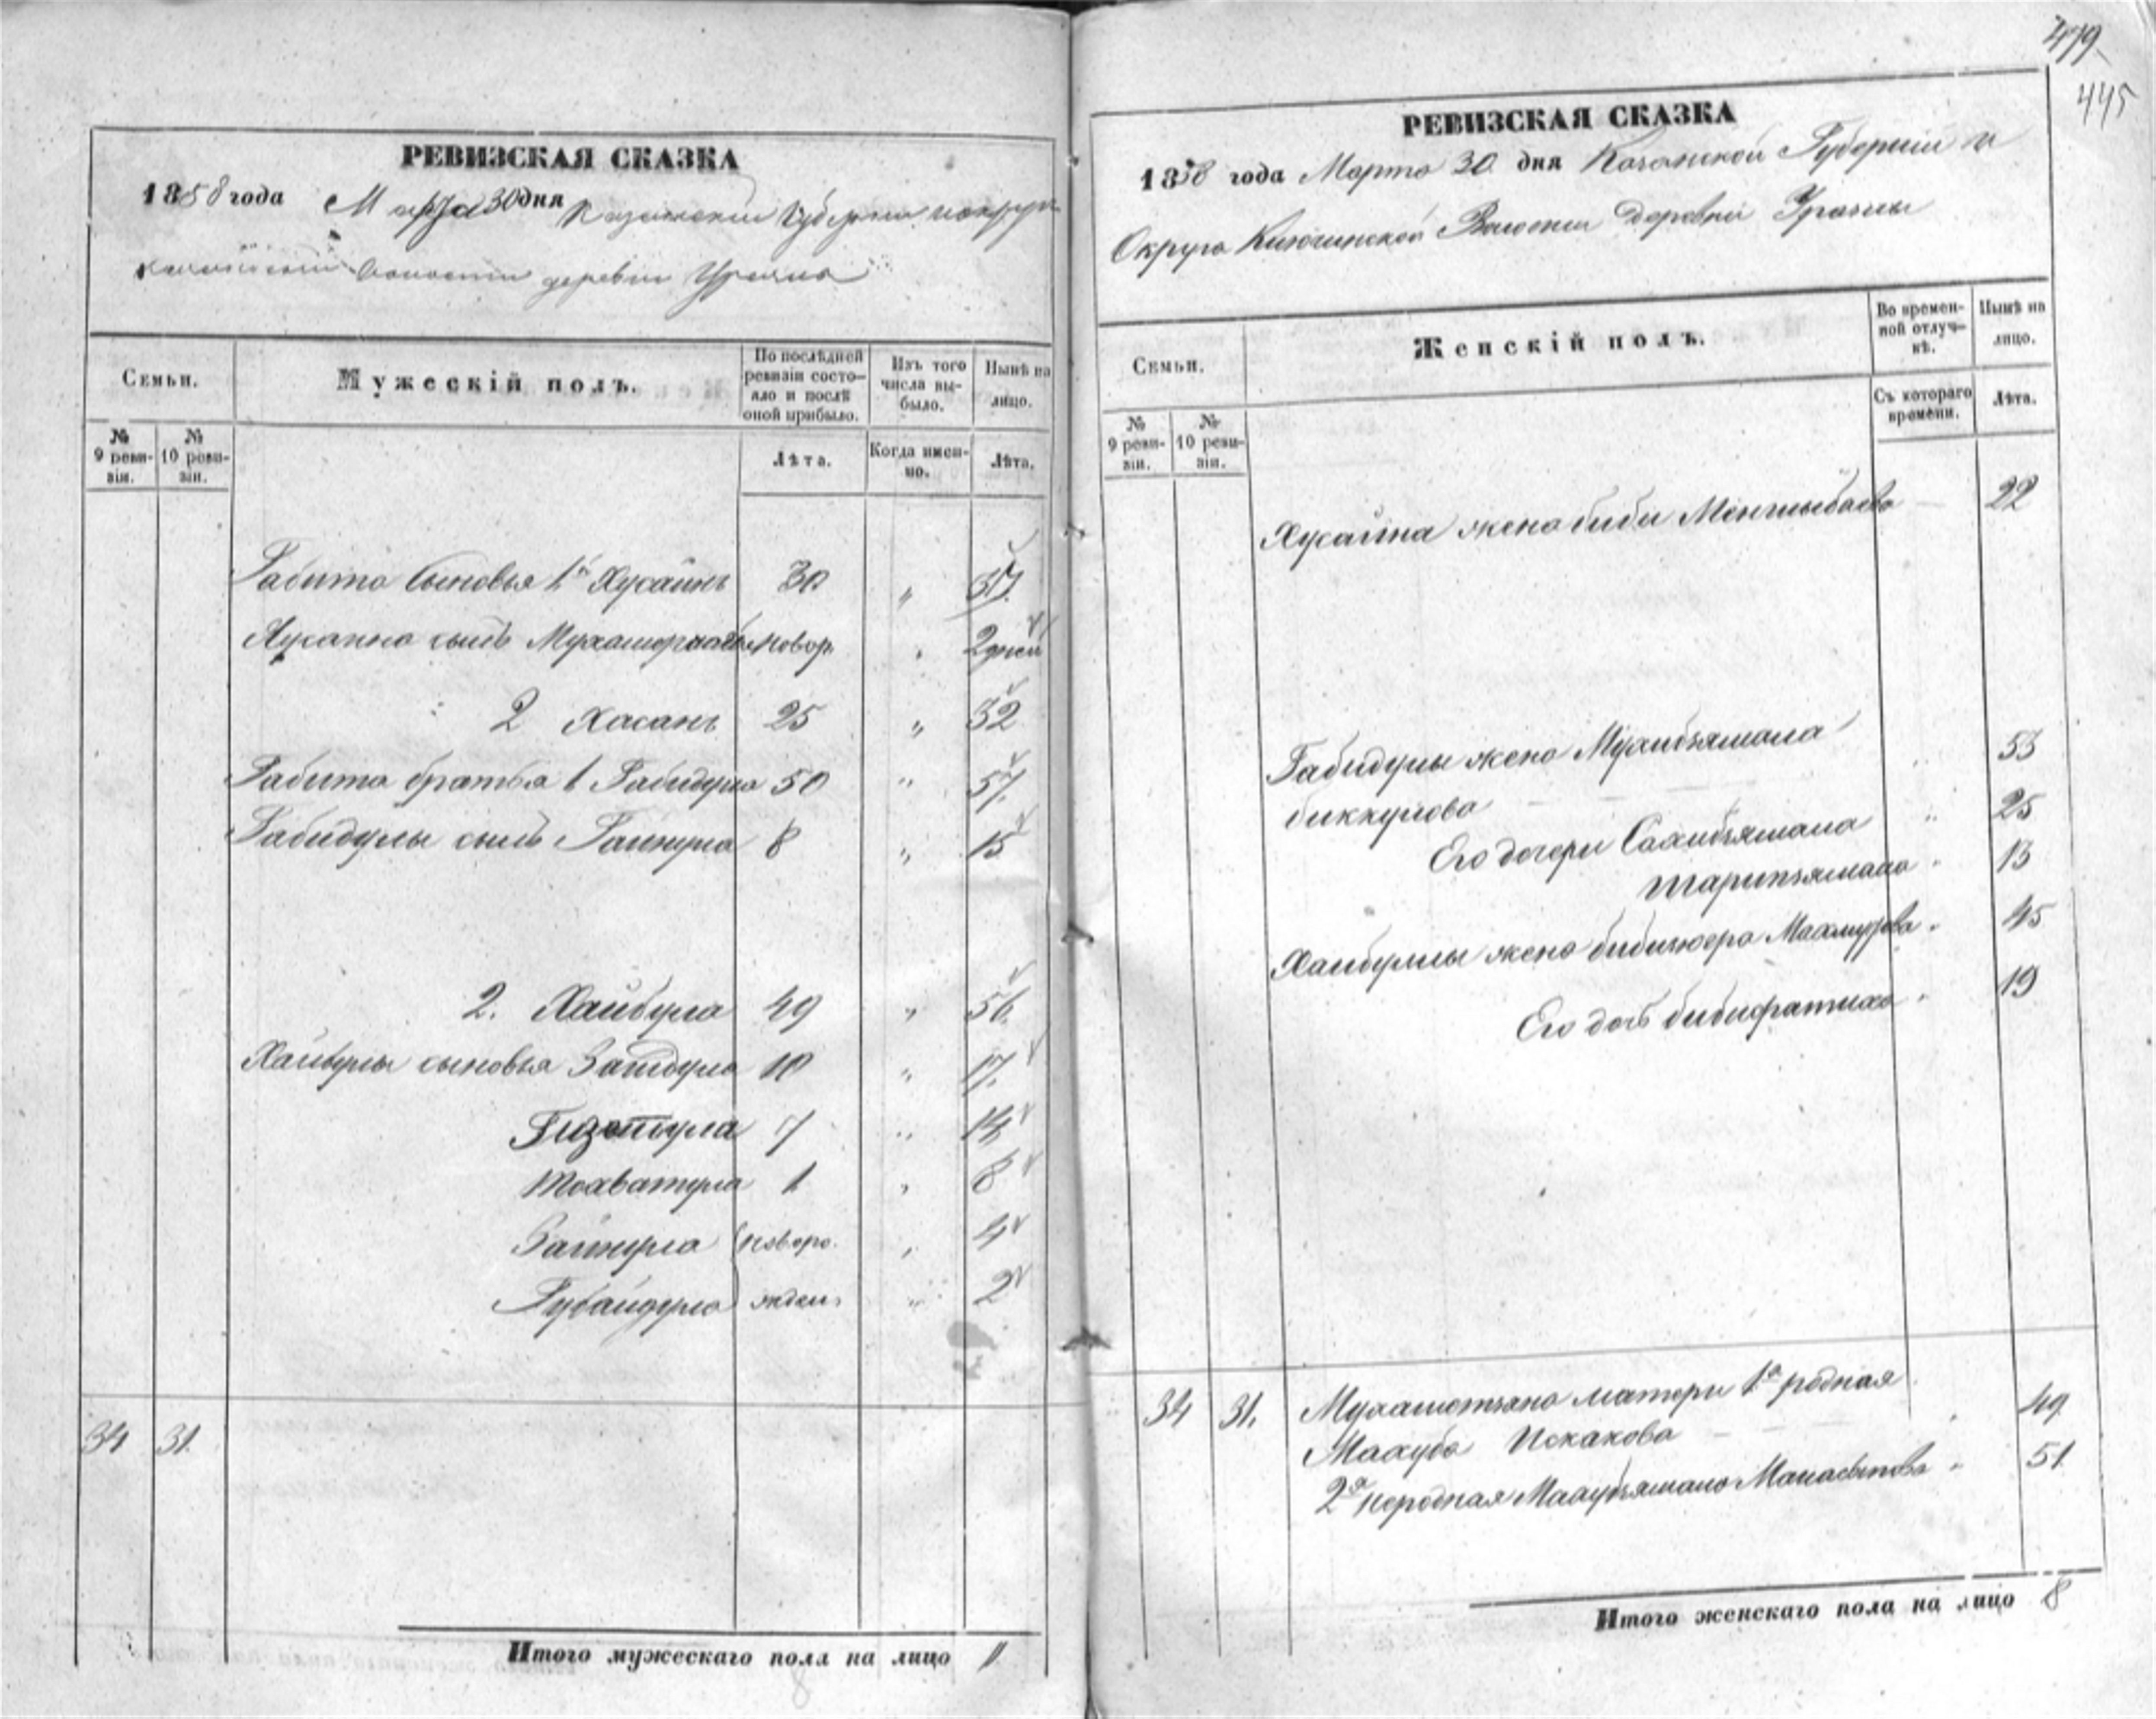 РЕВИЗСКАЯ СКАЗКА
1858 года Марта 30 дня Казанской Губернии и округи
волости деревни Урясла
Семьи.
Мужескій полъ.
По послѣдней ревизіи состояло и послѣ оной прибыло.
Изъ того числа выбыло.
Нынѣ на лицо.
№ 9 ревизіи.
№ 10 ревизіи.
Лѣта.
Когда именно.
Лѣта.
Габита сыновья 1й Хусаинъ 30 " 37.
Хусаина сынъ новор. " 2 дней
2 Хасанъ 25 " 32
Габита братья 1 Габидула 50 " 57.
Габидулы сынъ Гайнула 8 " 15
2. Хайбула 49 " 56.
Хайбулы сыновья Заидула 10 " 17.
Гизетула 7 " 14
Мохватула 1 " 8
Зайнула новоро- " 4
Губайдула жден " 2
34 31.
Итого мужескаго пола на лицо 11
479
445
РЕВИЗСКАЯ СКАЗКА
1858 года Марта 30 дня Казанской Губерніи и
Округа Волости деревни
Семьи.
Женскій полъ.
Во временной отлучкѣ.
Нынѣ на лицо.
№ 9 ревизіи.
№ 10 ревизіи.
Съ котораго времени.
Лѣта.
Хусаина жена биби 22
Габидулы жена Мухибзямала 53
биккулова
Его дочери Сахибзямала " 25
Шарипзямала " 13
Хайбуллы жена Махмудова " 45
Его дочь бибифатиха " 19
34 31. Мухаметзяна матери 1я родная
Махуба Искакова 49
2я неродная 51
Итого женскаго пола на лицо 8